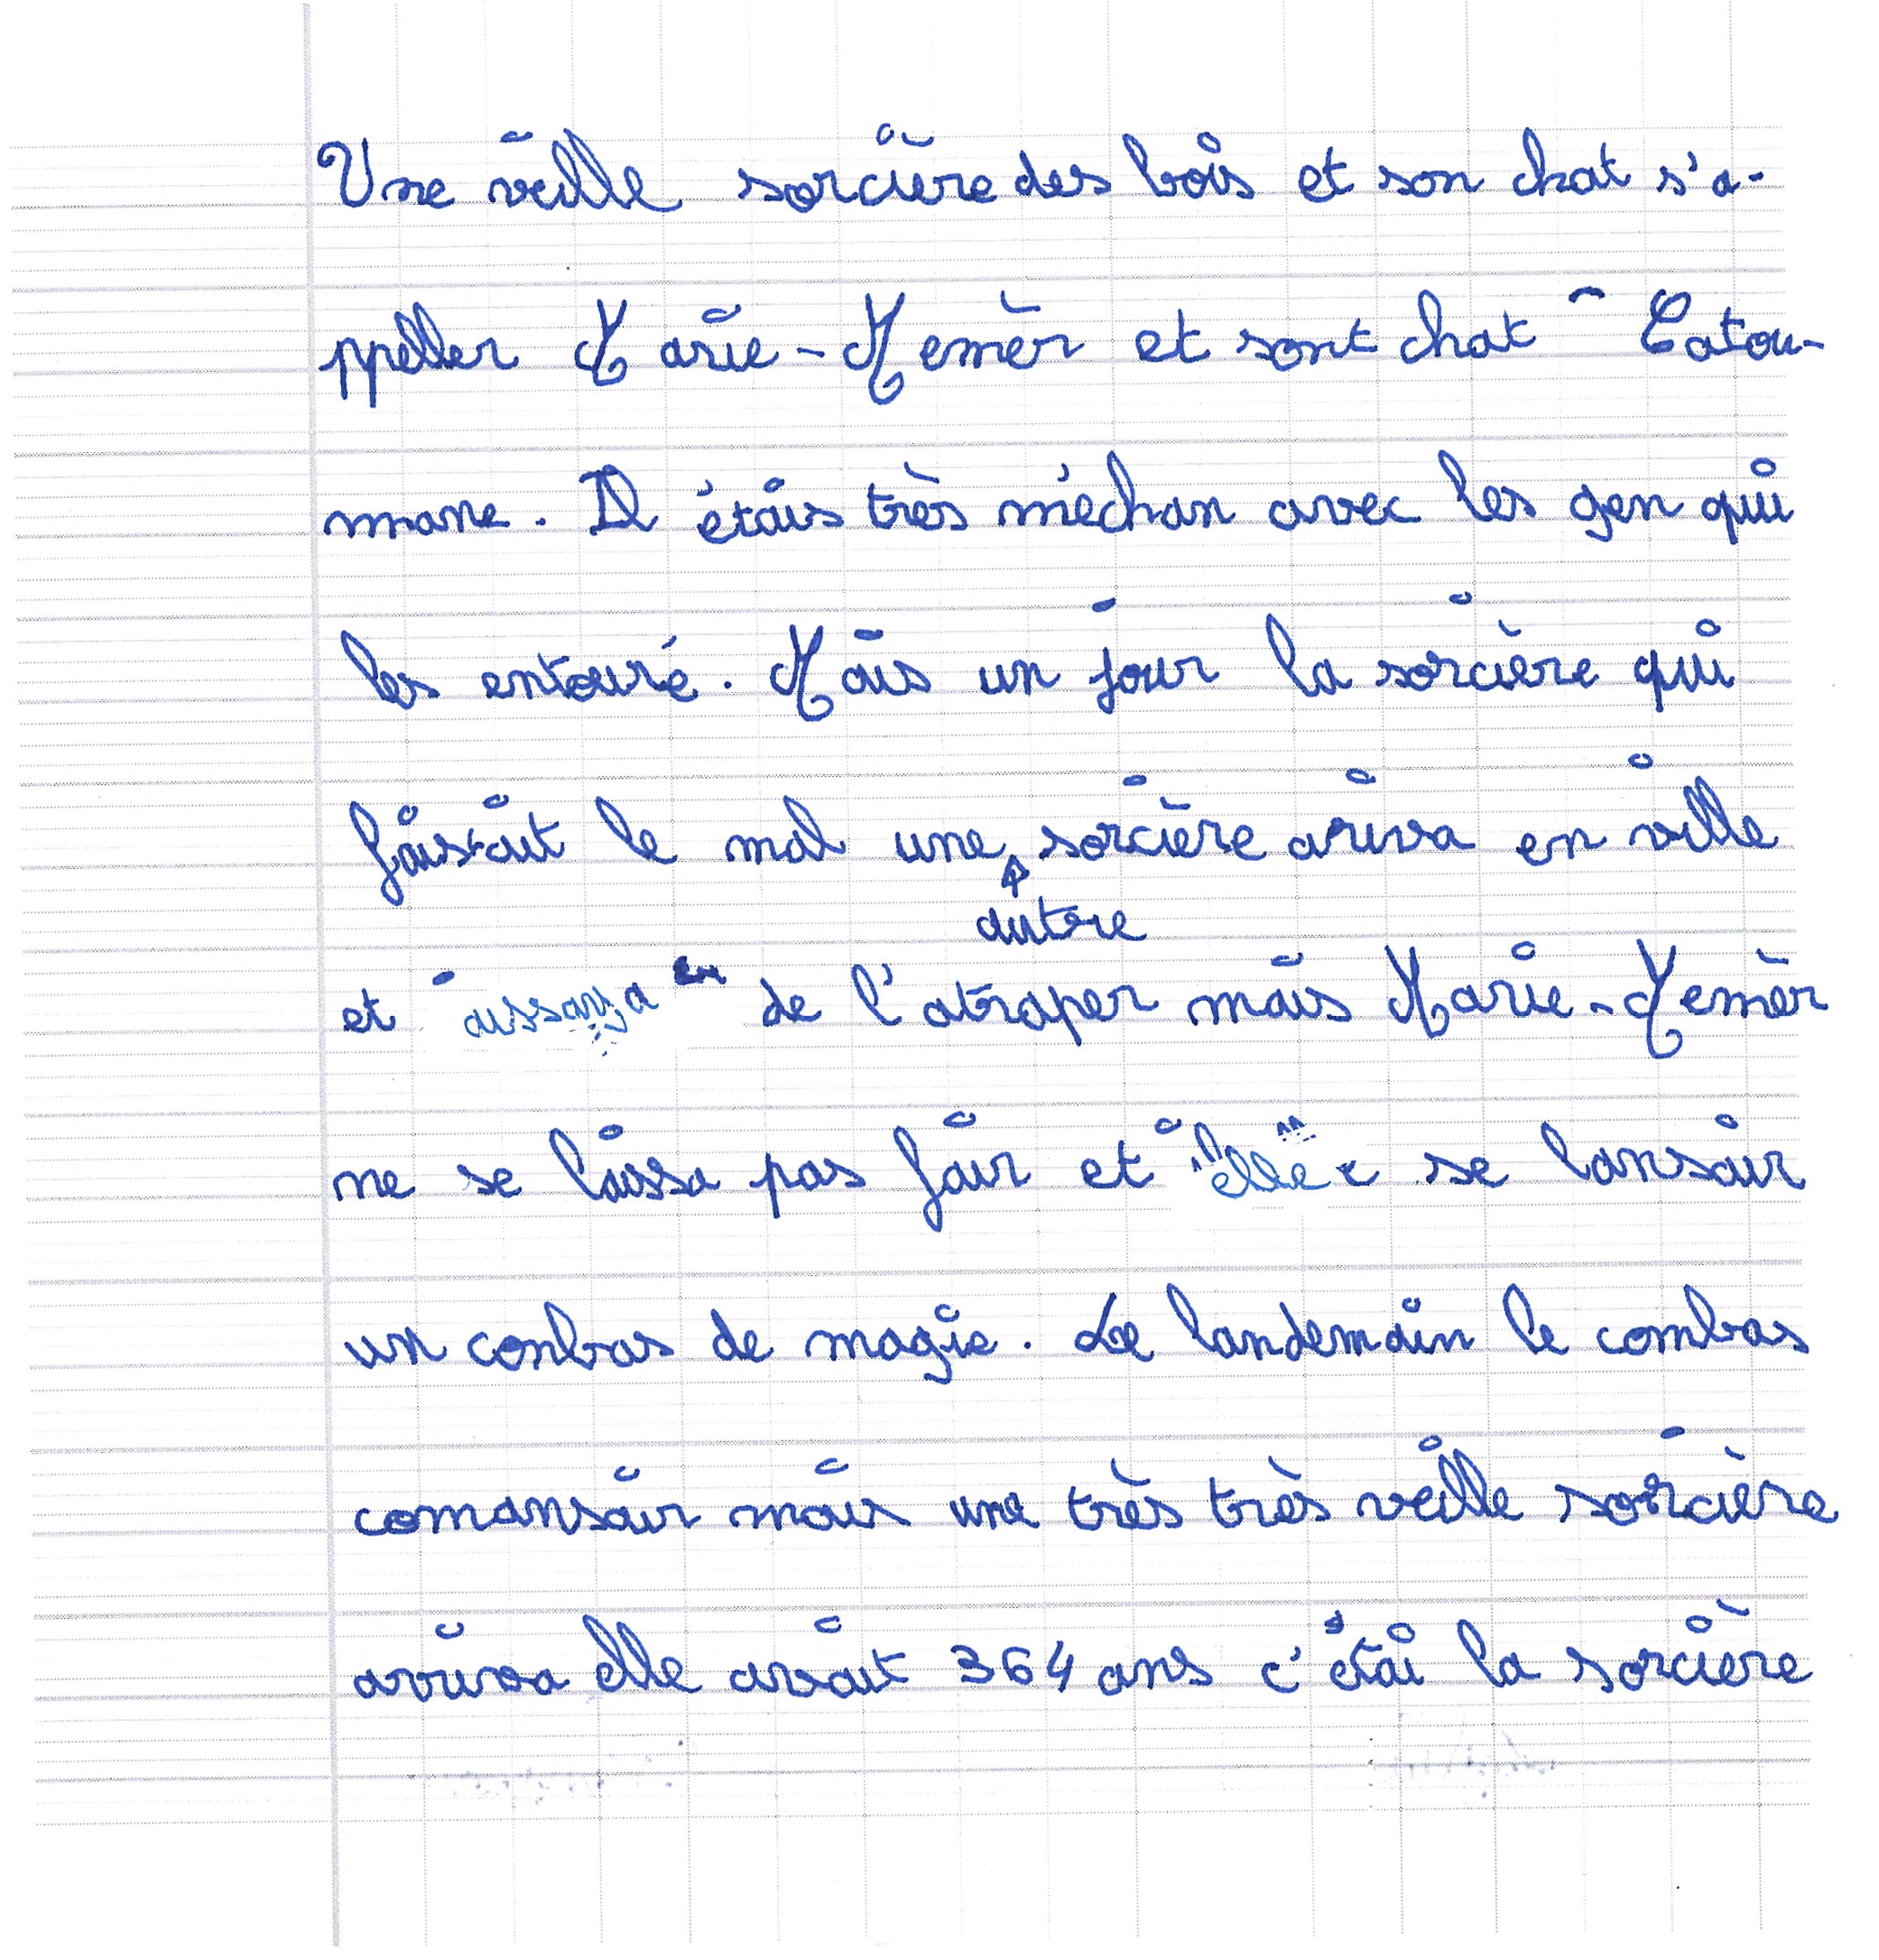 Une veille sorcière des bois et son chat s'a-
ppeller Marie-Memèr et sont chat Catou-
mane. Il étais très méchan avec les gen qui
les entouré. Mais un jour la sorcière qui
faisait le mal une autre sorcière ariva en ville
et aissaya de l'atraper mais Marie-Memèr
ne se laissa pas fair et elle se lansair
un conbas de magie. Le landemain le combas
comansair mais une très très veille sorcière
arriva elle avait 364 ans c'étai la sorcière